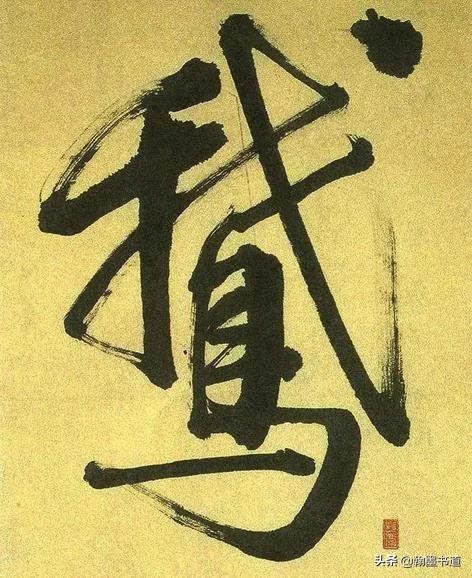 鵝
头条 @翰墨书道